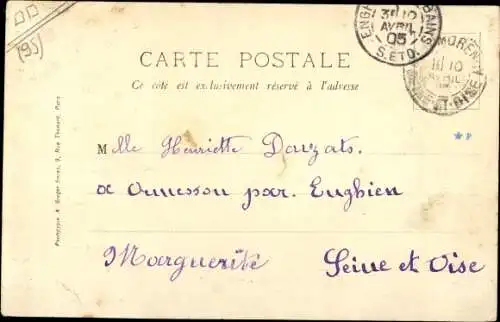 (95)
ENGHIEN-LES-BAINS
3E 10
AVRIL
05
S. ET O.
MORENCY
10
AVRIL
SEINE-ET-OISE
CARTE POSTALE
Ce côté est exclusivement réservé à l'adresse
Melle Henriette Dauzats.
a Ormesson par Enghien
Marguerite Seine et Oise
Phototypie A. Breger frères, 9, Rue Thénard, Paris